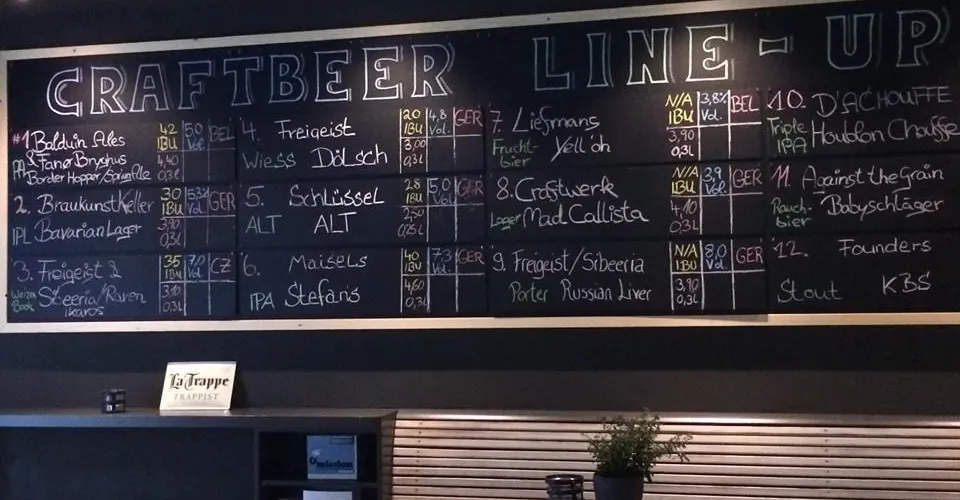 CRAFTBEER LINE-UP
#1 Balduin Ales
& Fanø Bryghus
PA Border Hopper/Spring Ale
42 IBU 5,0 Vol. BEL
4,40
0,3l
2. Braukunstkeller
IPL Bavarian Lager
30 IBU 5,3% Vol. GER
3,90
0,3l
3. Freigeist &
Weizen Bock Siberia/Raven
Ikaros
35 IBU 7,0 Vol. CZ
3,90
0,3l
4. Freigeist
Wiess Dölsch
20 IBU 4,8 Vol. GER
3,00
0,3l
5. Schlüssel
ALT ALT
28 IBU 5,0 Vol. GER
2,50
0,25l
6. Maisels
IPA Stefans
40 IBU 7,3 Vol. GER
4,60
0,3l
7. Liefmans
Frucht-
bier Yell'oh
N/A IBU 3,8% Vol. BEL
3,90
0,3l
8. Craftwerk
Lager Mad Callista
N/A IBU 3,9 Vol. GER
4,10
0,3l
9. Freigeist/Sibeeria
Porter Russian Liver
N/A IBU 8,0 Vol. GER
3,90
0,3l
10. D'ACHOUFFE
Triple
IPA Houblon Chouffe
11. Against the Grain
Rauch-
bier Babyschläger
12. Founders
Stout KBS
La Trappe
TRAPPIST